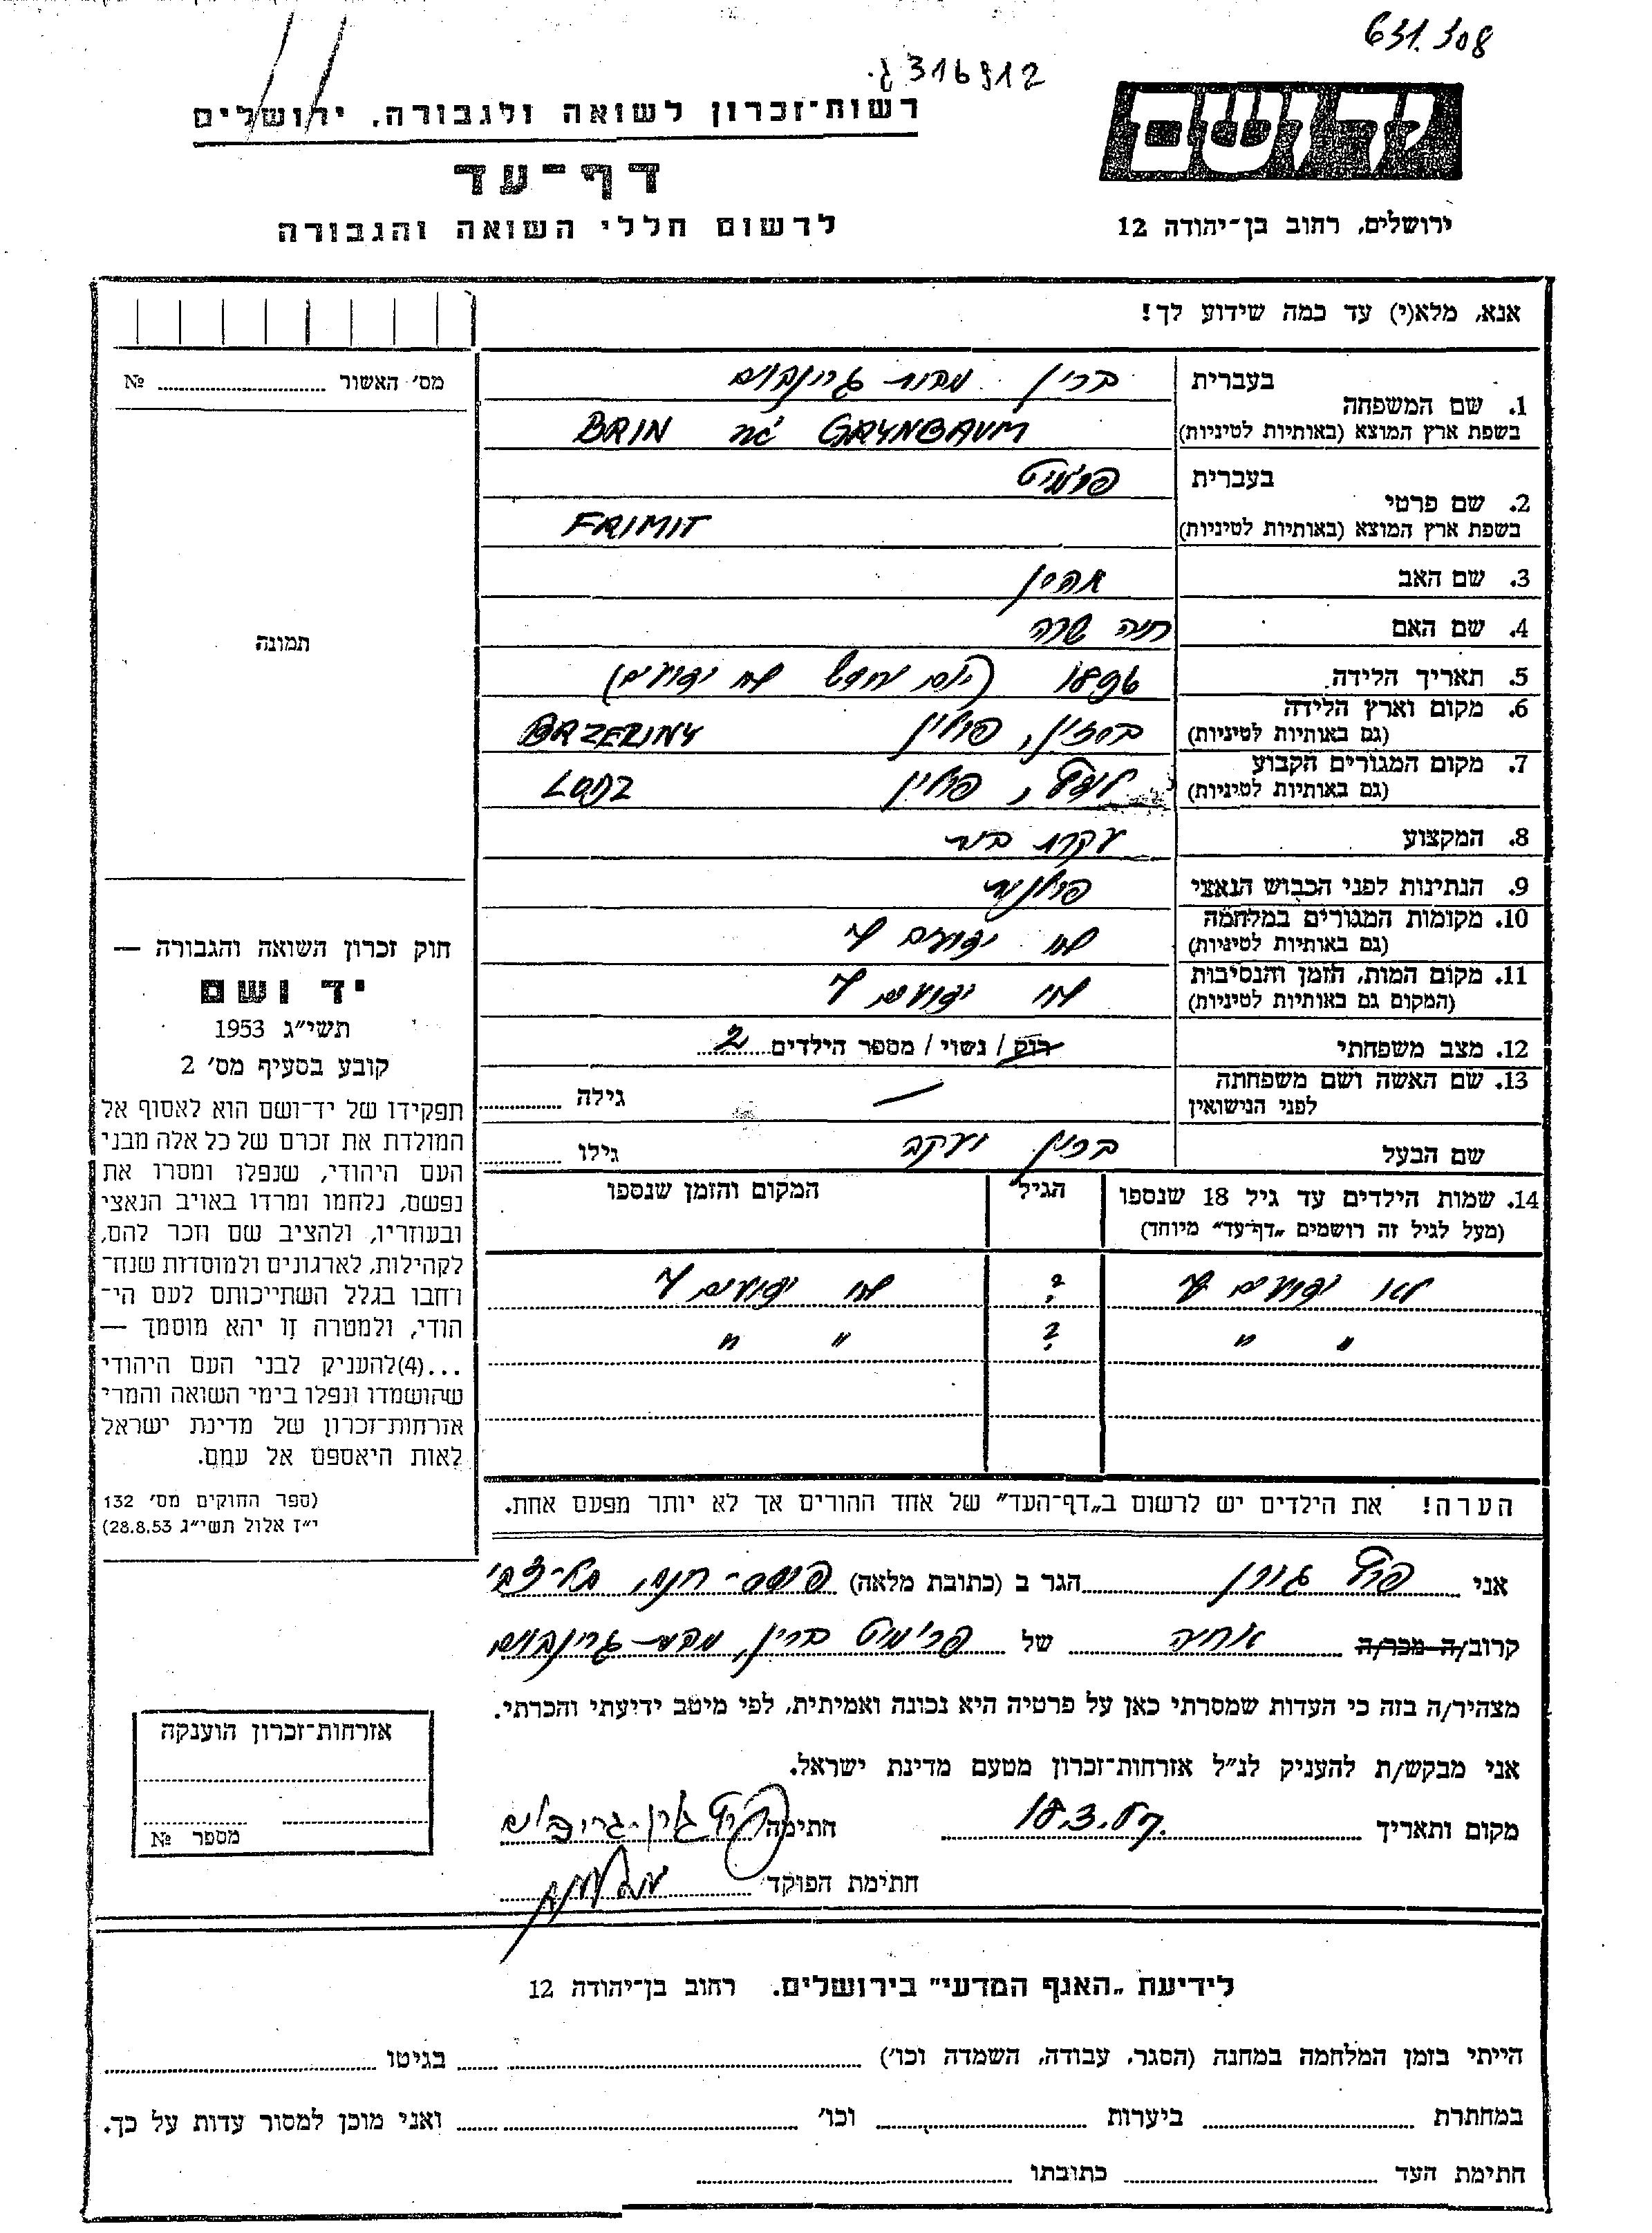 631.308
316912 ג.
יד ושם
רשות־זכרון לשואה ולגבורה, ירושלים
דף־עד
לרשום חללי השואה והגבורה
ירושלים, רחוב בן־יהודה 12
אנא, מלא(י) עד כמה שידוע לך!
מס׳ האשור ........ №
1. שם המשפחה
בעברית ברין מבית גרינבוים
בשפת ארץ המוצא (באותיות לטיניות) BRIN GRYNBAUM
2. שם פרטי
בעברית פרימיט
בשפת ארץ המוצא (באותיות לטיניות) FRIMIT
3. שם האב אהרון
4. שם האם חיה שרה
5. תאריך הלידה 1896 (יום וחודש לא ידועים)
6. מקום וארץ הלידה
(גם באותיות לטיניות) ברזין, פולין BRZEZINY
7. מקום המגורים הקבוע
(גם באותיות לטיניות) לודז׳, פולין LODZ
8. המקצוע עקרת בית
9. הנתינות לפני הכבוש הנאצי פולנית
10. מקומות המגורים במלחמה
(גם באותיות לטיניות) לא ידועים לי
11. מקום המות, הזמן והנסיבות
(המקום גם באותיות לטיניות) לא ידועים לי
12. מצב משפחתי רוק / נשוי / מספר הילדים 2
13. שם האשה ושם משפחתה
לפני הנישואין — גילה ........
שם הבעל ברין יעקב גילו ........
14. שמות הילדים עד גיל 18 שנספו הגיל המקום והזמן שנספו
(מעל לגיל זה רושמים „דף־עד״ מיוחד)
לא ידועים לי ? לא ידועים לי
״ ״ ? ״ ״
הערה! את הילדים יש לרשום ב„דף־העד״ של אחד ההורים אך לא יותר מפעם אחת.
תמונה
חוק זכרון השואה והגבורה —
יד ושם
תשי״ג 1953
קובע בסעיף מס׳ 2
תפקידו של יד־ושם הוא לאסוף אל
המולדת את זכרם של כל אלה מבני
העם היהודי, שנפלו ומסרו את
נפשם, נלחמו ומרדו באויב הנאצי
ובעוזריו, ולהציב שם וזכר להם,
לקהילות, לארגונים ולמוסדות שנח־
רחבו בגלל השתייכותם לעם הי־
הודי, ולמטרה זו יהא מוסמך —
...(4)להעניק לבני העם היהודי
שהושמדו ונפלו בימי השואה והמרי
אזרחות־זכרון של מדינת ישראל
לאות היאספם אל עמם.
(ספר החוקים מס׳ 132
י״ז אלול תשי״ג 28.8.53)
אני גורן הגר ב (כתובת מלאה) פרדס־חנה,
קרוב/ה מכר/ה אחיה של פרימיט ברין, מבית גרינבוים
מצהיר/ה בזה כי העדות שמסרתי כאן על פרטיה היא נכונה ואמיתית, לפי מיטב ידיעתי והכרתי.
אני מבקש/ת להעניק לנ״ל אזרחות־זכרון מטעם מדינת ישראל.
מקום ותאריך 18.3.57 חתימה
חתימת הפוקד
אזרחות־זכרון הוענקה
מספר №
לידיעת „האגף המדעי״ בירושלים. רחוב בן־יהודה 12
הייתי בזמן המלחמה במחנה (הסגר, עבודה, השמדה וכו׳) ........ בגיטו ........
במחתרת ........ ביערות ........ וכו׳ ........ ואני מוכן למסור עדות על כך.
חתימת העד ........ כתובתו ........